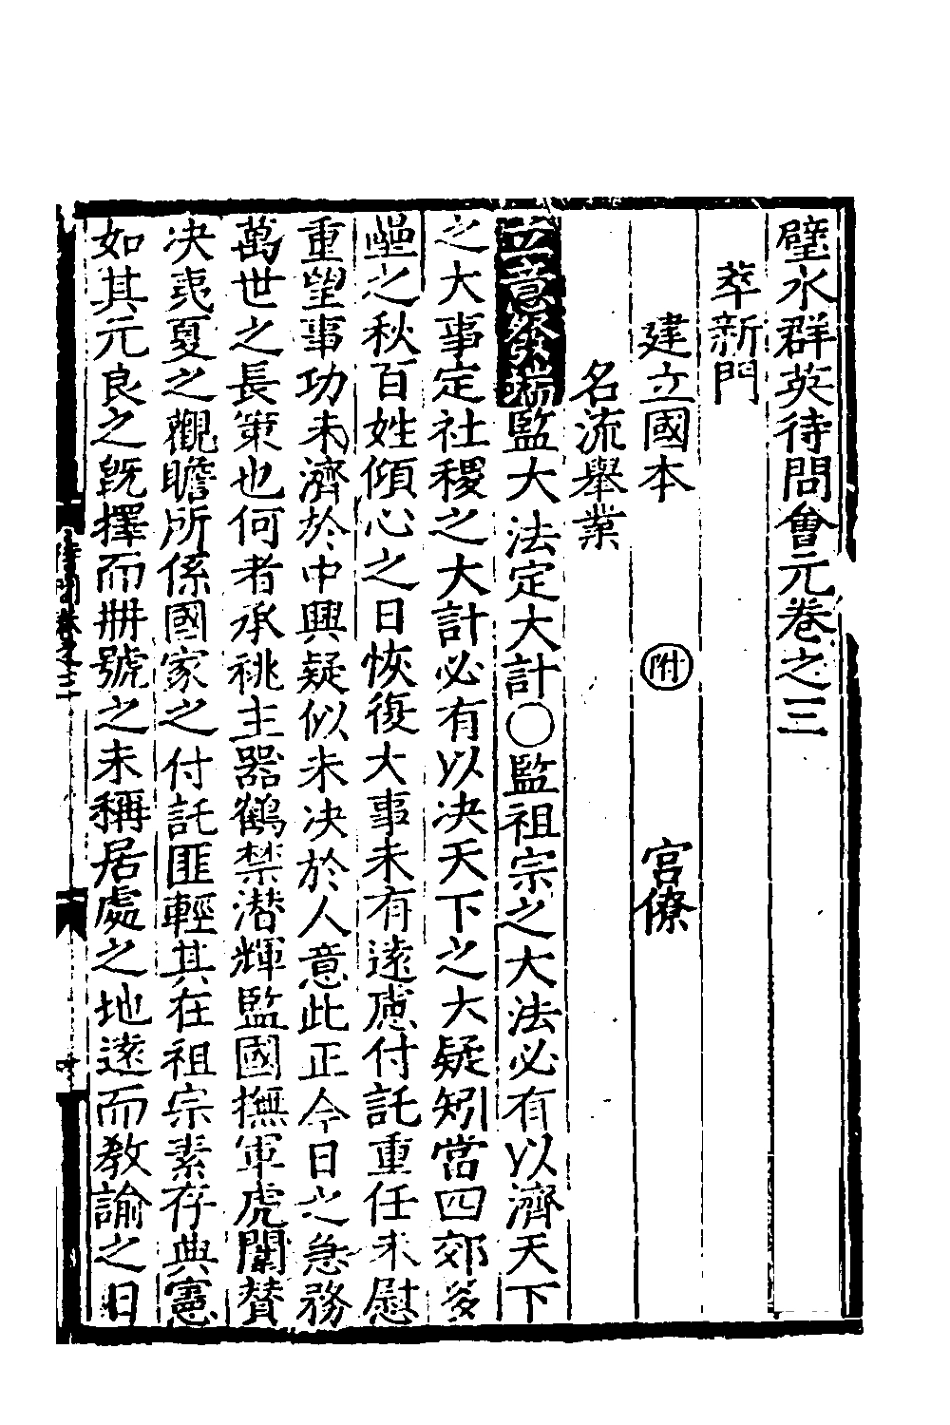 璧水群英待問會元卷之三
萃新門
建立國本 附 宫僚
名流舉業
立意發端監大法定大計〇監祖宗之大法必有以濟天下
之大事定社稷之大計必有以决天下之大疑矧當四郊多
壘之秋百姓傾心之日恢復大事未有遠慮付託重任未慰
重望事功未濟於中興疑似未决於人意此正今日之急務
萬世之長策也何者承祧主器鶴禁潜輝監國撫軍虎闈賛
决夷夏之觀瞻所係國家之付託匪輕其在祖宗素存典憲
如其元良之旣擇而冊號之未稱居處之地遠而教諭之日
待問卷之三十